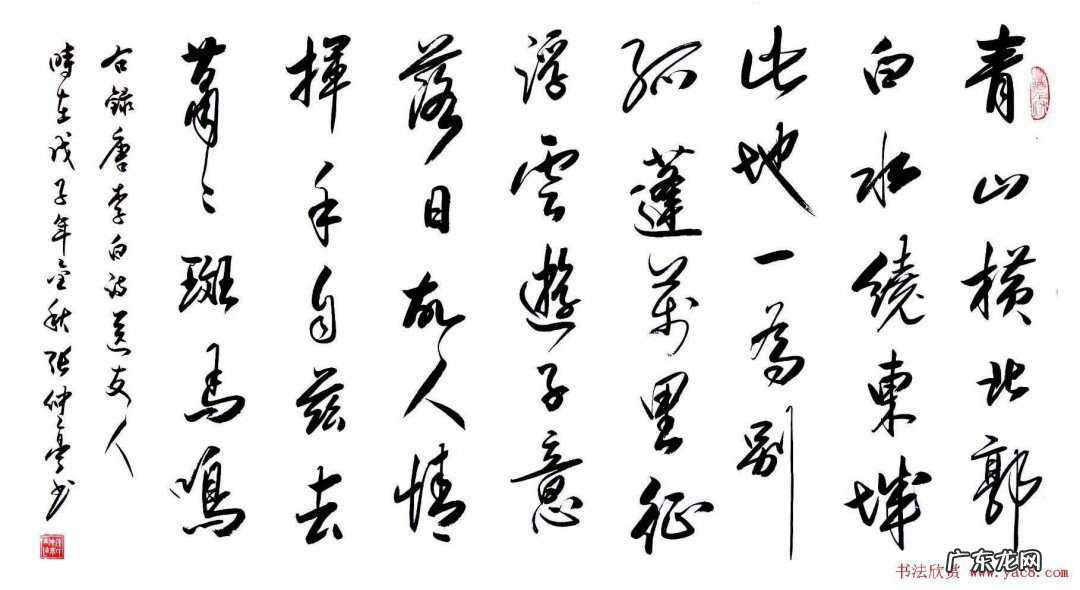 青山横北郭
白水繞東城
此地一為別
孤蓬萬里征
浮雲遊子意
落日故人情
揮手自茲去
蕭〻斑馬鳴
右録唐李白詩送友人
時在戊子年金秋張仲亭书
广东龙网
书法欣赏 www.yac8.com